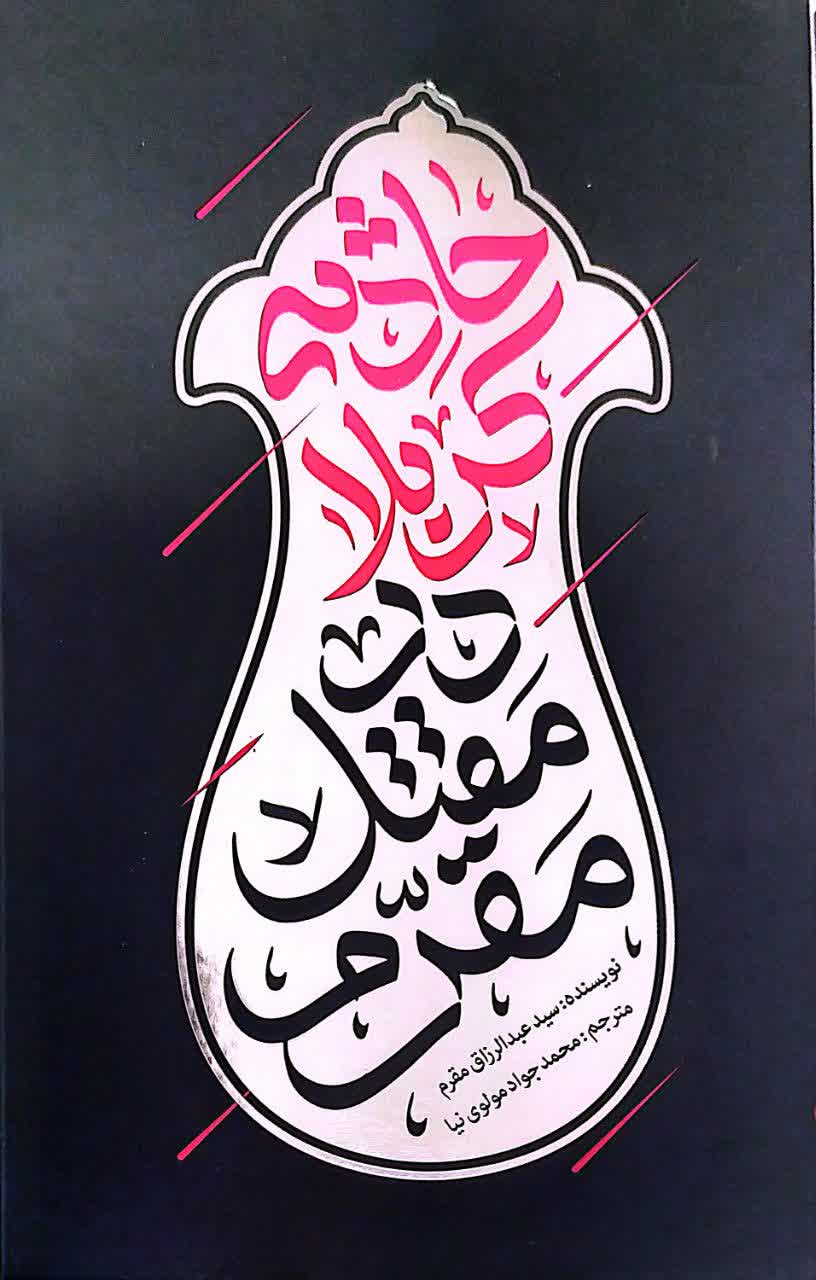 حادثه
کربلا
در
مَقتل
مَقرّم
نویسنده: سید عبدالرزاق مقرم
مترجم: محمد جواد مولوی نیا